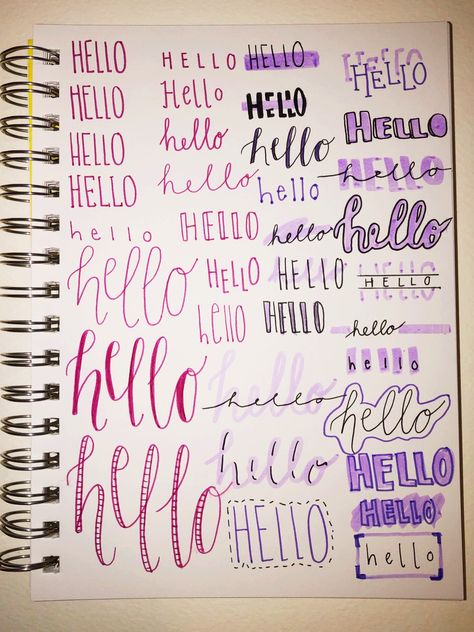 HELLO
HELLO
HELLO
HELLO
hello
hello
hello
hello
HELLO
Hello
hello
hello
HELLO
HELLO
hello
HELLO
HELLO
hello
hello
hello
HELLO
HELLO
hello
hello
hello
HELLO
HELLO
HELLO
hello
hello
HELLO
hello
hello
hello
HELLO
HELLO
hello